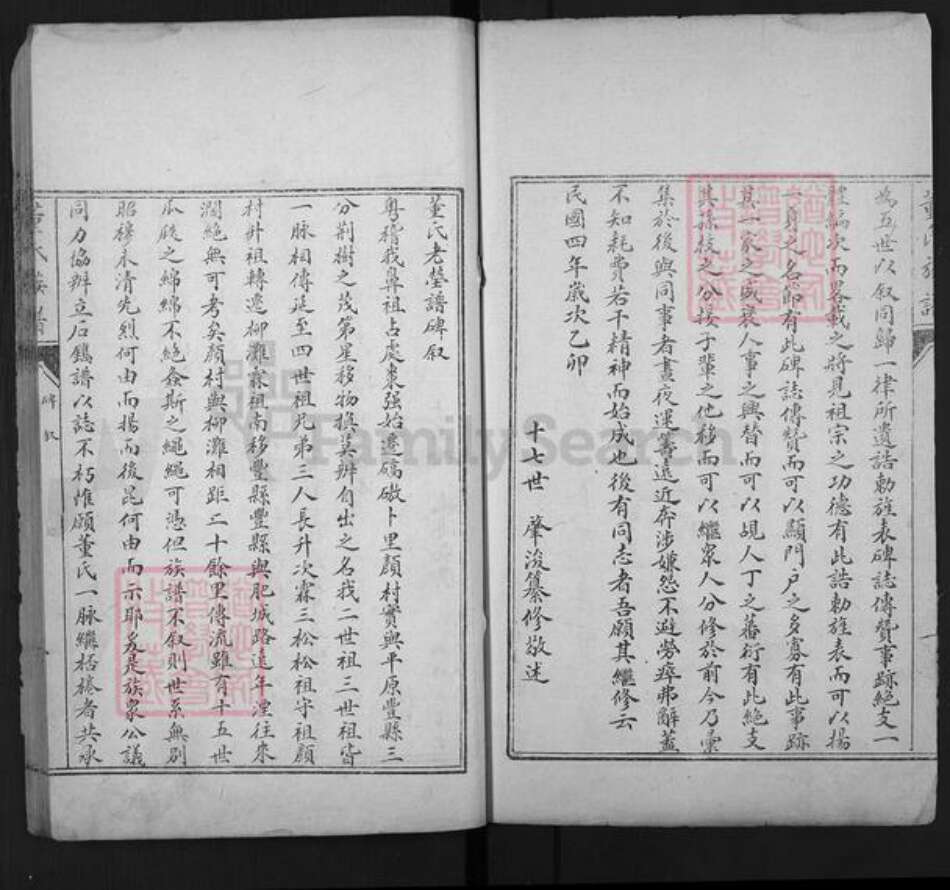 為五世以叙同歸一律所遺誥勅旌表碑誌傳贊事跡絕支一
體編次而畧載之將見祖宗之功德有此誥勅旌表而可以揚
身之名節有此碑誌傳贊而可以顯門戶之多寡有此事跡
其一家之盛衰人事之興替而可以覘人丁之蕃衍有此絕支
其孫枝之分接子輩之他移而可以繼衆人分修於前今乃彙
集於後與同事者晝夜運籌遠近奔涉嫌怨不避勞瘁弗辭蓋
不知耗費若干精神而始成也後有同志者吾願其繼修云
民國四年歲次乙卯
十七世 肇浚纂修敬述
董氏老塋譜碑叙
粵稽我鼻祖占處棗强始遷碻磝卜里顏村實與平原豐縣三
分荆樹之茂第星移物換莫辨自出之名我二世祖三世祖皆
一脉相傳延至四世祖兄弟三人長升次霖三松松祖守祖顏
村升祖轉遷柳灘霖祖南移豐縣豐縣與肥城路遠年湮往來
濶絕無可考矣顏村與柳灘相距二十餘里傳流雖有十五世
瓜瓞之綿綿不絕螽斯之繩繩可憑但族譜不叙則世系無別
昭穆不清先烈何由而揚而後昆何由而示耶爰是族衆公議
同力協辦立石鐫譜以誌不朽惟願董氏一脉繼栝棬者共承
董氏族譜
碑叙
一
FamilySearch